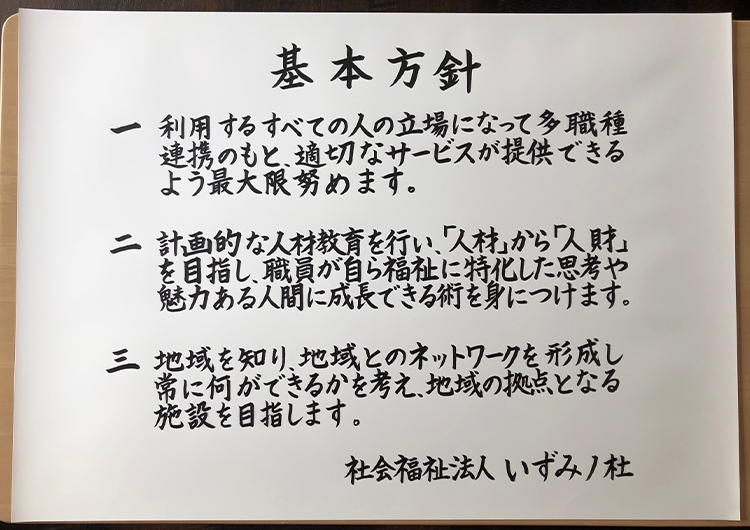 基本方針
一 利用するすべての人の立場になって多職種
連携のもと、適切なサービスが提供できる
よう最大限努めます。
二 計画的な人材教育を行い、「人材」から「人財」
を目指し、職員が自ら福祉に特化した思考や
魅力ある人間に成長できる術を身につけます。
三 地域を知り、地域とのネットワークを形成し
常に何ができるかを考え、地域の拠点となる
施設を目指します。
社会福祉法人 いずみノ杜